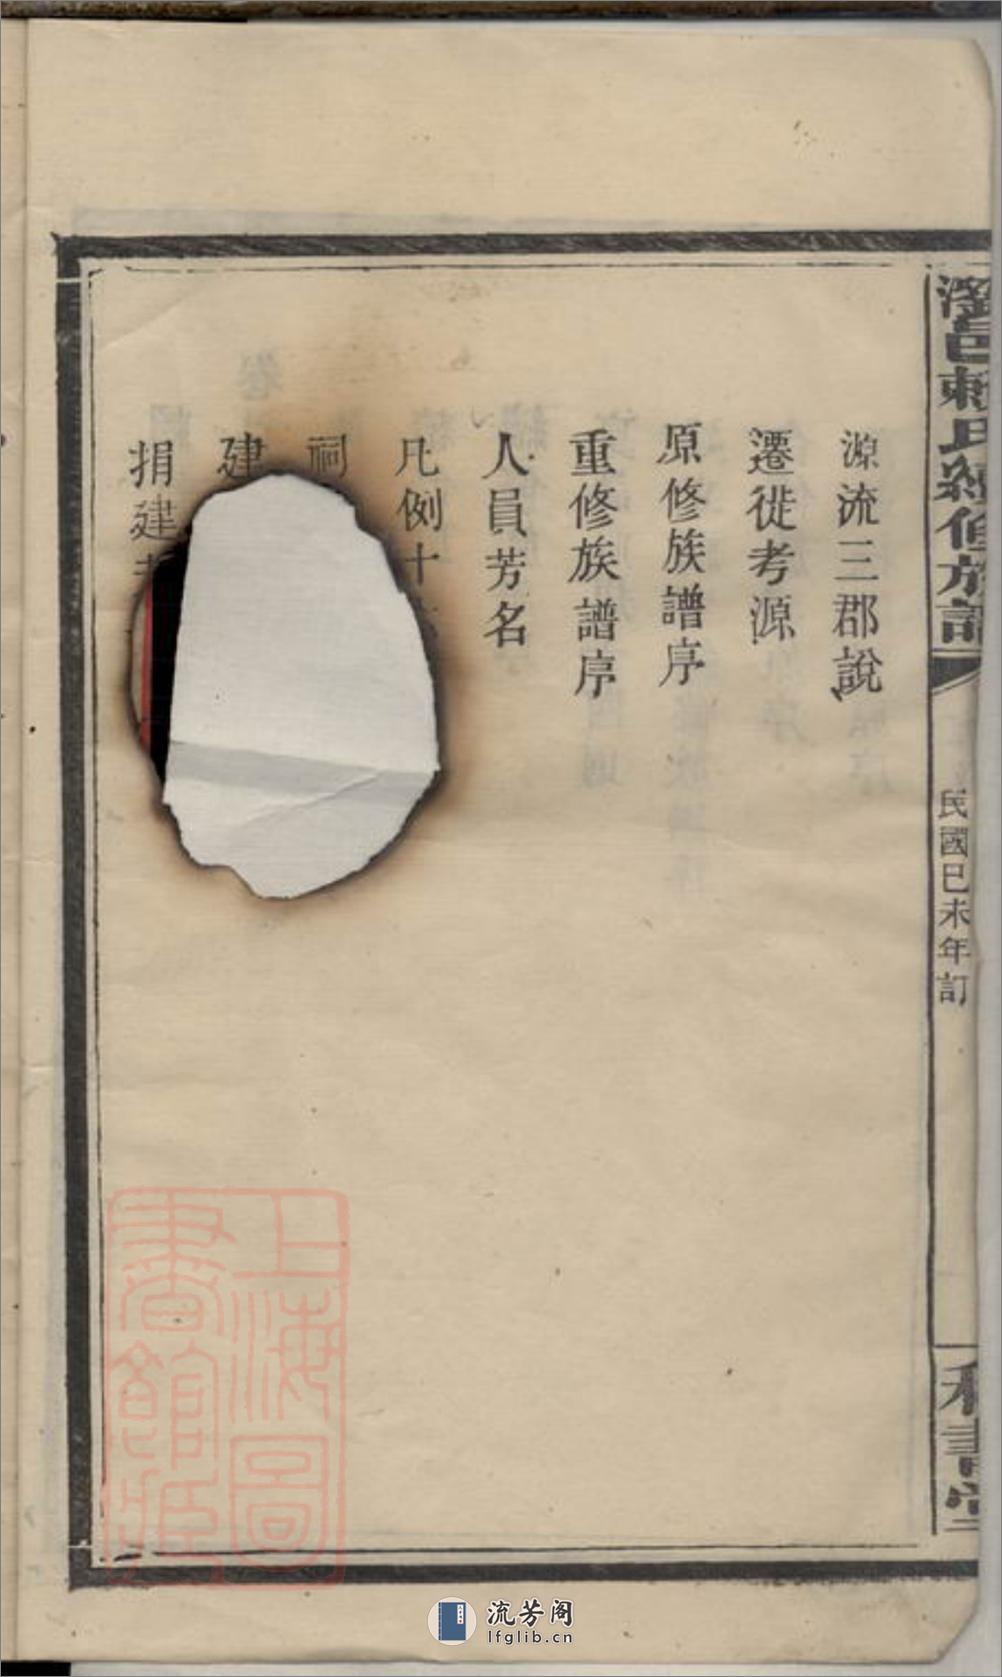 瀏邑賴氏續修族譜
民國己未年訂
源流三郡說
遷徙考源
原修族譜序
重修族譜序
人員芳名
凡例十
祠
建
捐建
上海圖
書館藏
流芳阁
lfglib.cn